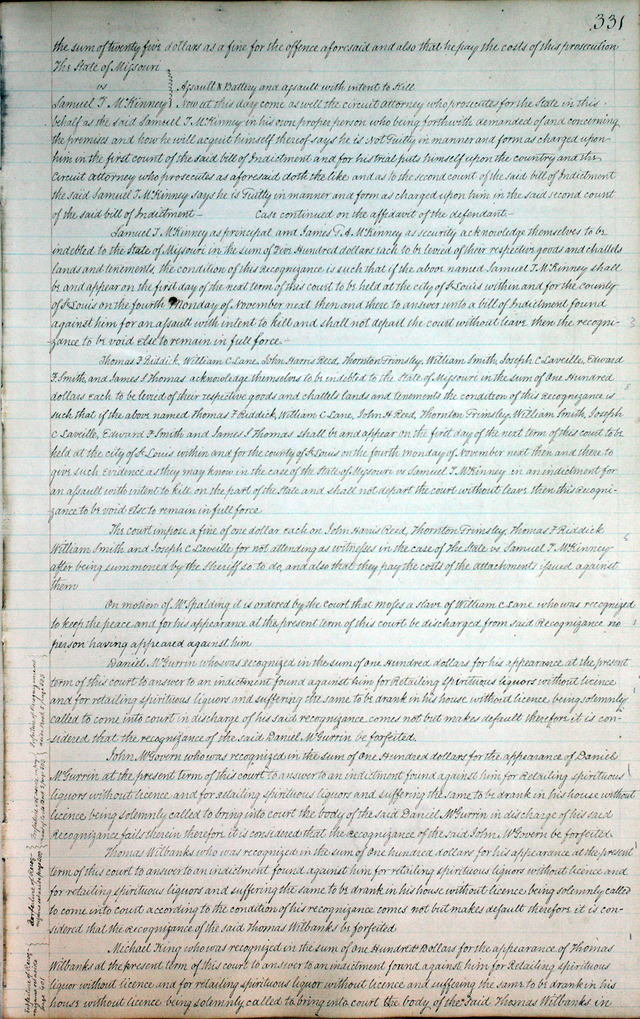 331
the sum of twenty five dollars as a fine for the offence aforesaid and also that he pay the costs of this prosecution
The State of Missouri
vs
Assault & Battery and assault with intent to Kill
Samuel T. McKinney Now at this day come as well the circuit attorney who prosecutes for the State in this
behalf as the said Samuel T. McKinney in his own proper person who being forth with demanded of and concerning
the premises and how he will acquit himself thereof says he is Not Guilty in manner and form as charged upon
him in the first count of the said bill of Indictment and for his trial puts himself upon the country and the
Circuit attorney who prosecutes as aforesaid doth the like and as to the second count of the said bill of Indictment
the said Samuel T. McKinney says he is Guilty in manner and form as charged upon him in the said second count
of the said bill of Indictment — Case continued on the affidavit of the defendant —
Samuel T. McKinney as principal and James McKinney as security acknowledge themselves to be
indebted to the State of Missouri in the sum of Five Hundred dollars each to be levied of their respective goods and chattels
lands and tenements, the condition of this Recognizance is such that if the above named Samuel T. McKinney shall
be and appear on the first day of the next term of this court to be held at the city of St Louis within and for the county
of St Louis on the fourth Monday of November next then and there to answer unto a bill of Indictment found
against him for an assault with intent to kill and shall not depart the court without leave then the recogni-
zance to be void Else to remain in full force —
Thomas F Riddick, William C Lane, John Harris Reed, Thornton Grimsley, William Smith, Joseph C Laveille, Edward
F. Smith, and James S Thomas acknowledge themselves to be indebted to the State of Missouri in the sum of One Hundred
dollars each to be levied of their respective goods and chattels lands and tenements the condition of this Recognizance is
such that if the above named Thomas F Riddick, William C Lane, John H Reed, Thornton Grimsley, William Smith, Joseph
C Laveille, Edward F Smith and James S Thomas shall be and appear on the first day of the next term of this court to be
held at the city of St Louis within and for the county of St Louis on the fourth monday of November next then and there to
give such Evidence as they may know in the case of the State of Missouri vs Samuel T. McKinney in an indictment for
an assault with intent to kill on the part of the State and shall not depart the court without leave then this Recogni-
zance to be void else to remain in full force
The court impose a fine of one dollar each on John Harris Reed, Thornton Grimsley, Thomas F Riddick
William Smith and Joseph C Laveille for not attending as witnesses in the case of The State vs Samuel T. McKinney
after being summoned by the Sheriff so to do, and also that they pay the costs of the attachments issued against
them
On motion of Mr Spalding it is ordered by the Court that Moses a slave of William C Lane who was recognized
to keep the peace, and for his appearance at the present term of this court be discharged from said Recognizance no
person having appeared against him
Daniel McGurrin who was recognized in the sum of one Hundred dollars for his appearance at the present
term of this court to answer to an indictment found against him for Retailing spirituous liquors without licence
and for retailing spirituous liquors and suffering the same to be drank in his house without licence being solemnly
called to come into court in discharge of his said recognizance comes not but makes default therefore it is con-
sidered that the recognizance of the said Daniel McGurrin be forfeited.
John McGovern who was recognized in the sum of One Hundred dollars for the appearance of Daniel
McGurrin at the present term of this court to answer to an indictment found against him for Retailing spirituous
liquors without licence and for retailing spirituous liquors and suffering the same to be drank in his house without
licence being solemnly called to bring into court the body of the said Daniel McGurrin in discharge of his said
Recognizance fails therein therefore it is considered that the Recognizance of the said John McGovern be forfeited
Thomas Wilbanks who was recognized in the sum of One hundred dollars for his appearance at the present
term of this court to answer to an indictment found against him for retailing spirituous liquors without licence and
for retailing spirituous liquors and suffering the same to be drank in his house without licence being solemnly called
to come into court according to the condition of his recognizance comes not but makes default therefore it is con-
sidered that the Recognizance of the said Thomas Wilbanks be forfeited
Michael King who was recognized in the sum of one Hundred Dollars for the appearance of Thomas
Wilbanks at the present term of this court to answer to an indictment found against him for Retailing spirituous
liquor without licence and for retailing spirituous liquor without licence and suffering the same to be drank in his
house without licence being solemnly called to bring into court the body of the said Thomas Wilbanks in